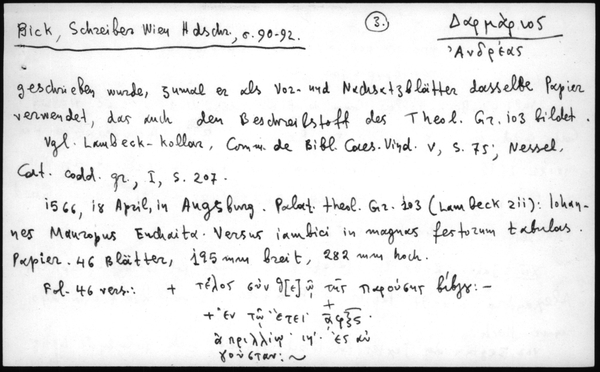 Bick, Schreiber Wien Hdschr., σ. 90-92.
3.
Δαρμάριος
Ἀνδρέας
geschrieben wurde, zumal er als Vor- und Nachsatzblätter dasselbe Papier
verwendet, das auch den Beschreibstoff des Theol. Gr. 103 bildet.
Vgl. Lambeck-Kollar, Comm. de Bibl. Caes. Vind. V, S. 75; Nessel,
Cat. codd. gr., I, S. 207.
1566, 18 April, in Augsburg. Palat. theol. Gr. 103 (Lambeck 211): Iohan-
nes Mauropus Euchaita. Versus iambici in magnas festorum tabulas.
Papier. 46 Blätter, 195 mm breit, 282 mm hoch.
Fol. 46 vers.: + τέλος σὺν θ[ε]ῷ τῆς παρούσης βίβλου:–
+ ἐν τῷ ἔτει αφξς
ἀπριλλίῳ ιη' ἐς αὐ
γούσταν:~